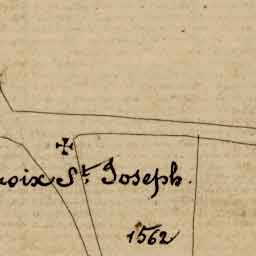 roix St. Joseph.
1562